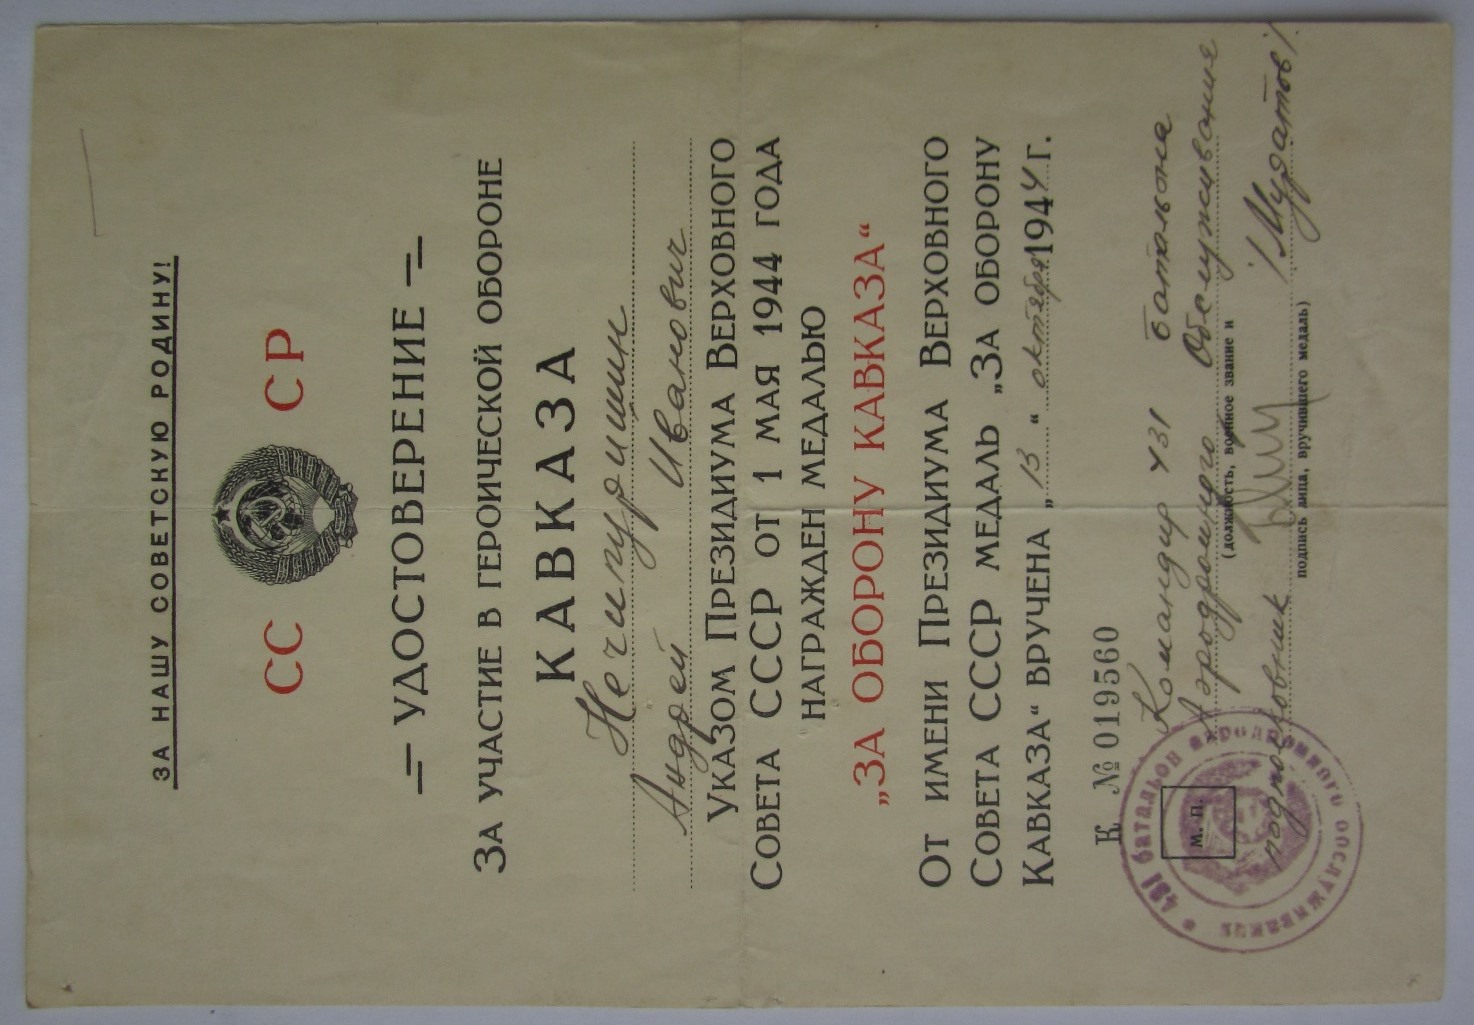 ЗА НАШУ СОВЕТСКУЮ РОДИНУ!
СС СР
— УДОСТОВЕРЕНИЕ —
ЗА УЧАСТИЕ В ГЕРОИЧЕСКОЙ ОБОРОНЕ
КАВКАЗА
Нечипуришин
Андрей Иванович
УКАЗОМ ПРЕЗИДИУМА ВЕРХОВНОГО
СОВЕТА СССР ОТ 1 МАЯ 1944 ГОДА
НАГРАЖДЕН МЕДАЛЬЮ
„ЗА ОБОРОНУ КАВКАЗА“
ОТ ИМЕНИ ПРЕЗИДИУМА ВЕРХОВНОГО
СОВЕТА СССР МЕДАЛЬ „ЗА ОБОРОНУ
КАВКАЗА“ ВРУЧЕНА „13“ октября 1944 Г.
К № 019560
Командир 431 батальона
Аэродромного Обслуживания
(должность, военное звание и
подполковник /Мудатов/
подпись лица, вручившего медаль)
М. П.
431 батальон аэродромного обслуживания